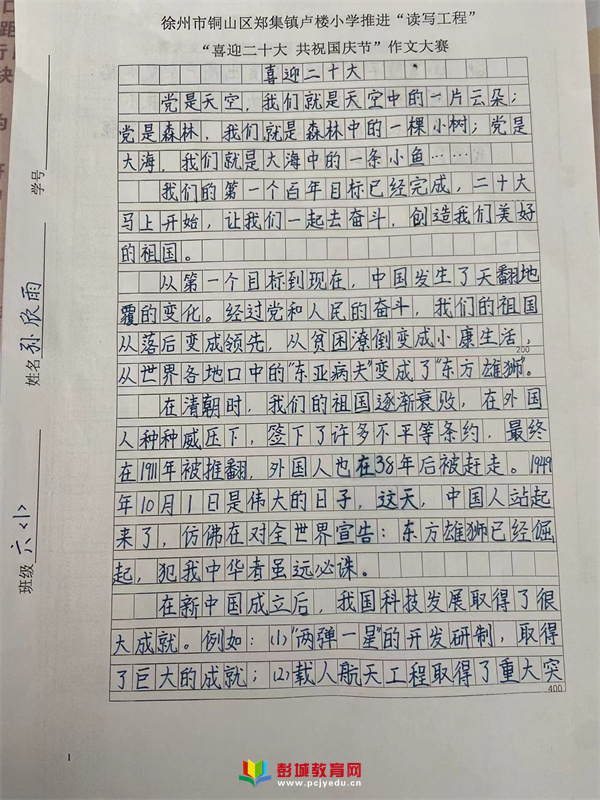 徐州市铜山区郑集镇卢楼小学推进“读写工程”
“喜迎二十大 共祝国庆节”作文大赛
喜迎二十大
党是天空，我们就是天空中的一片云朵；
党是森林，我们就是森林中的一棵小树；党是
大海，我们就是大海中的一条小鱼……
我们的第一个百年目标已经完成，二十大
马上开始，让我们一起去奋斗，创造我们美好
的祖国。
从第一个目标到现在，中国发生了天翻地
覆的变化。经过党和人民的奋斗，我们的祖国
从落后变成领先，从贫困潦倒变成小康生活，
200
从世界各地口中的“东亚病夫”变成了“东方雄狮”。
在清朝时，我们的祖国逐渐衰败，在外国
人种种威压下，签下了许多不平等条约，最终
在1911年被推翻，外国人也在38年后被赶走。1949
年10月1日是伟大的日子，这天，中国人站起
来了，仿佛在对全世界宣告：东方雄狮已经倔
起，犯我中华者虽远必诛。
在新中国成立后，我国科技发展取得了很
大成就。例如：(1)“两弹一星”的开发研制，取得
了巨大的成就；(2)载人航天工程取得了重大突
400
班级 六(1) 姓名 孙欣雨 学号
1
彭城教育网
www.pcjyw.com